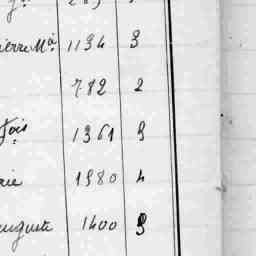 ierre Mie 1134 3
782 2
fois 1361 3
rie 1980 4
auguste 1400 3